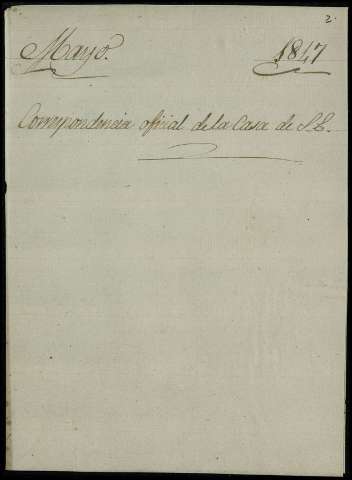 2.
Mayo. 1847
Correspondencia oficial de la Casa de S.E.